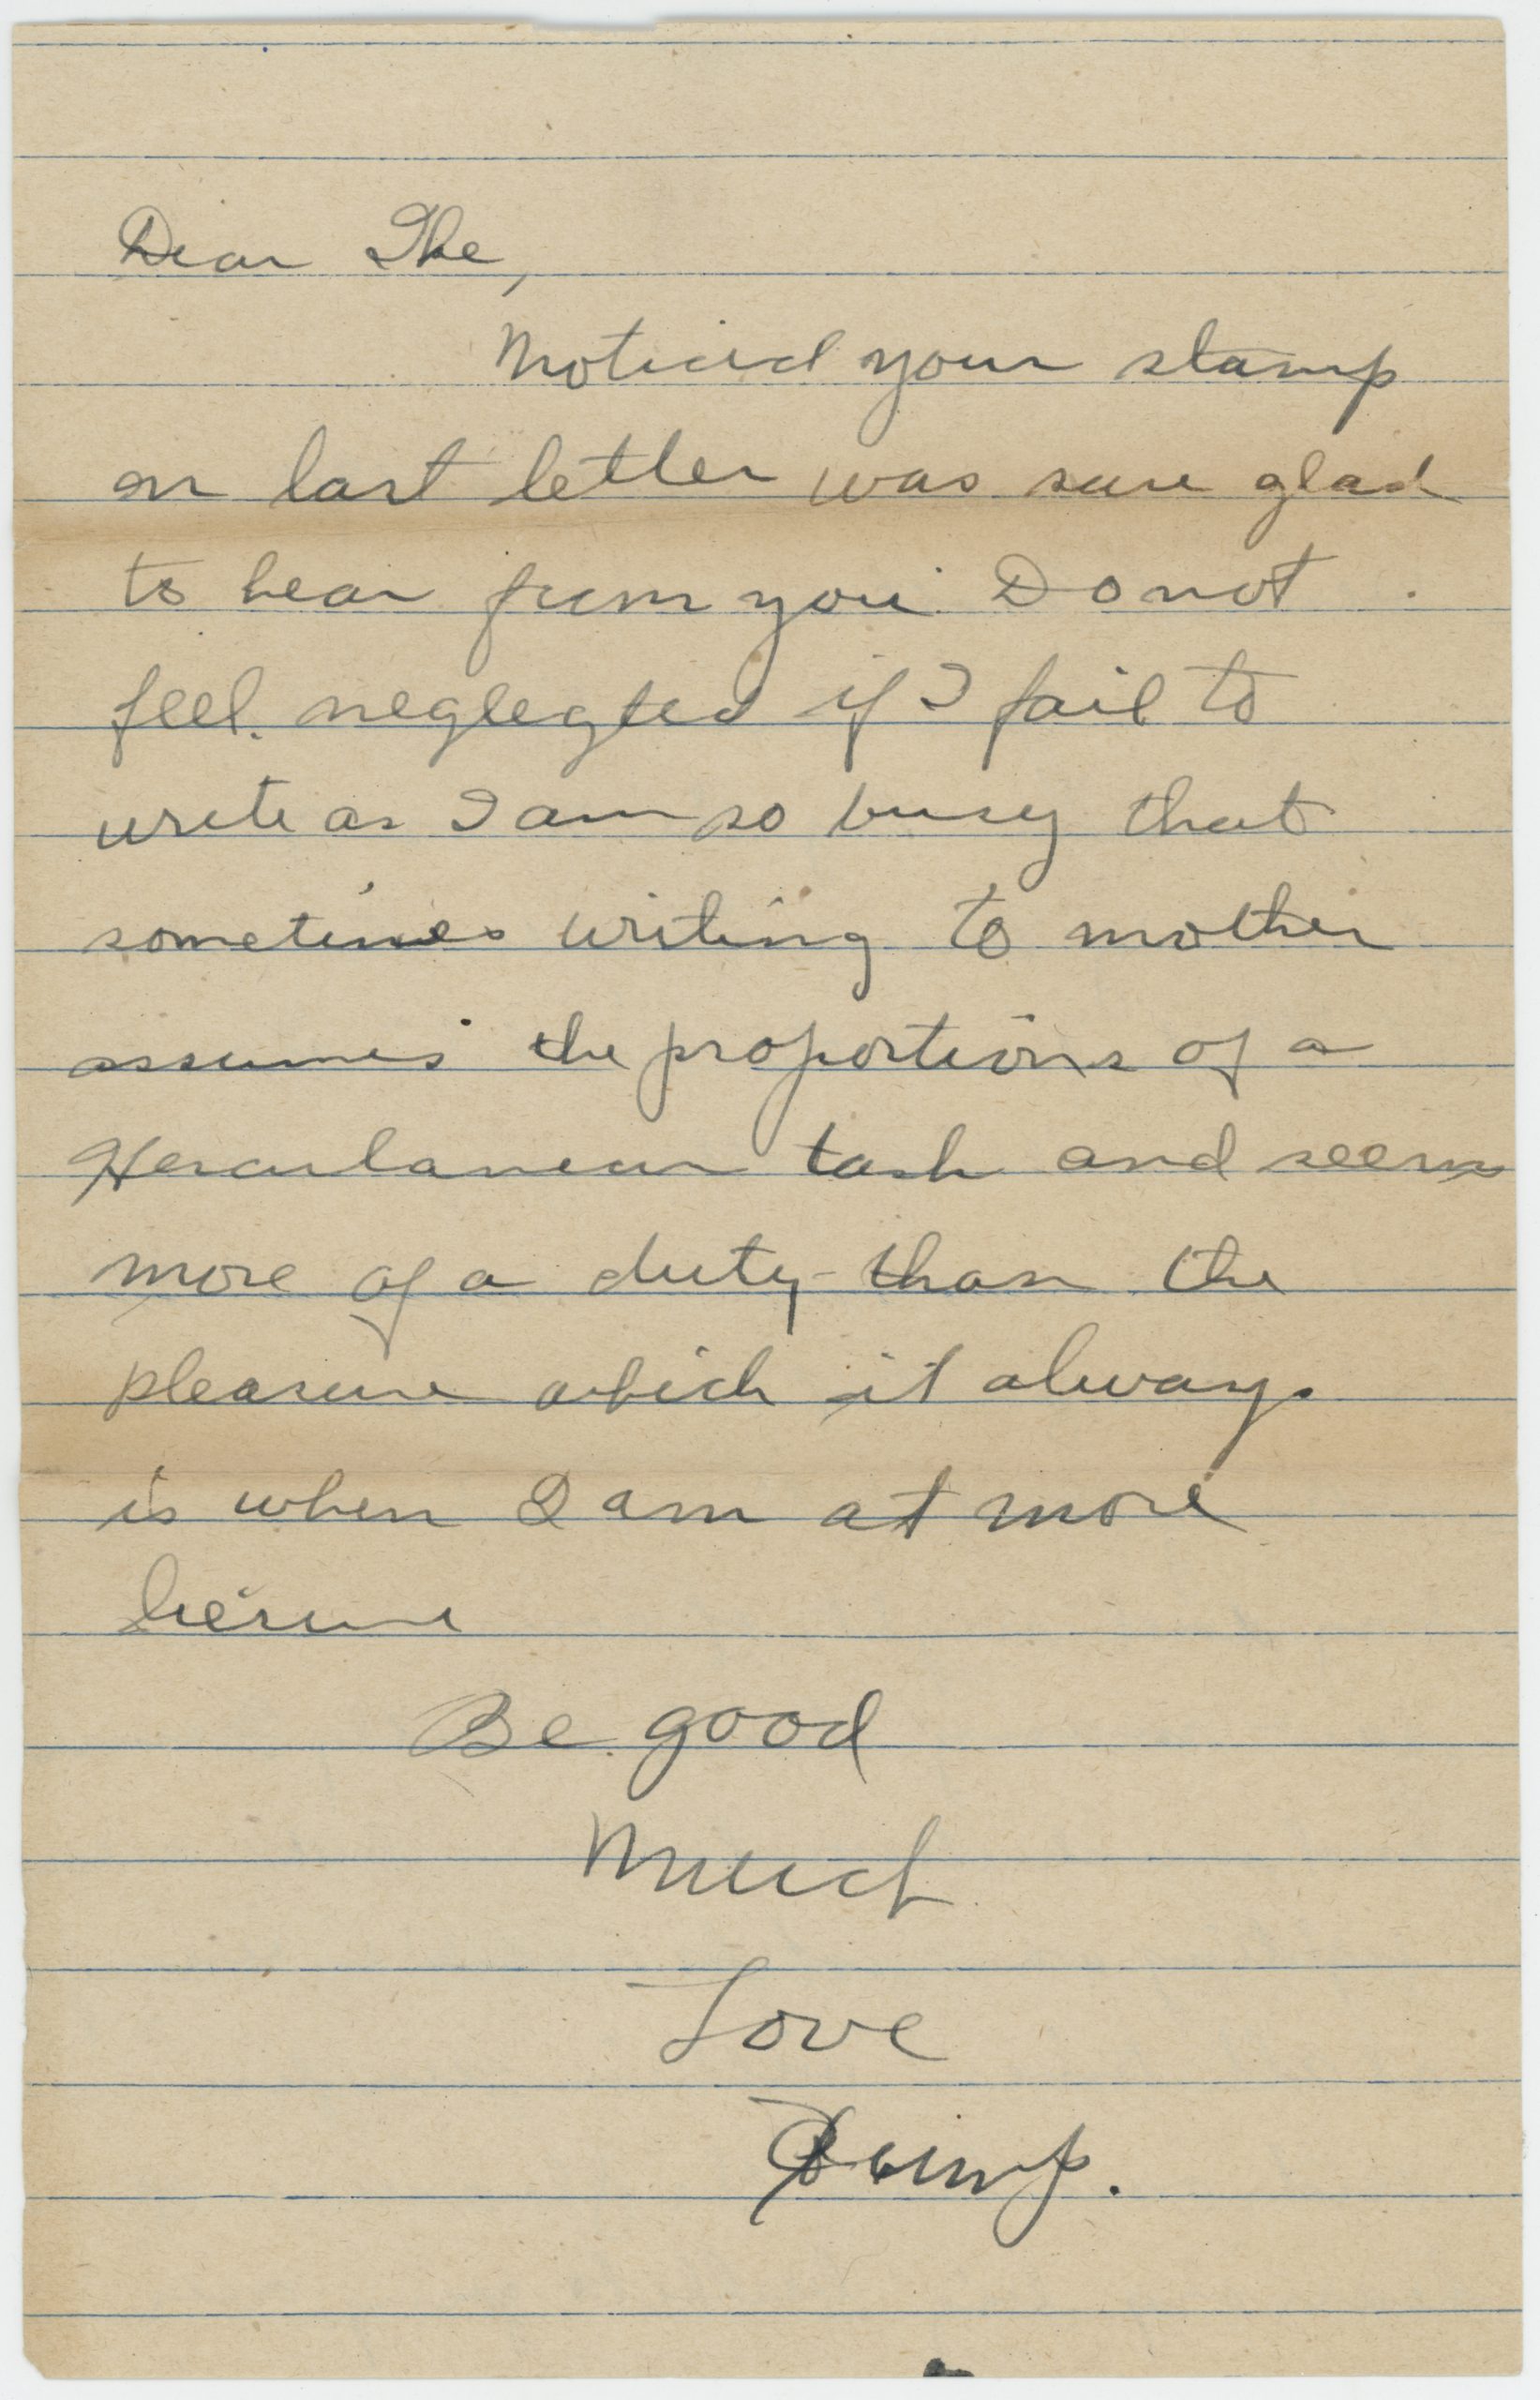 Dear Ike,
Noticed your stamp
on last letter was sure glad
to hear from you Do not
feel neglegted if I fail to
write as I am so busy that
sometimes writing to mother
assumes the proportions of a
Herculanean task and seems
more of a duty than the
pleasure which it always
is when I am at more
liesure
Be good
Much
Love